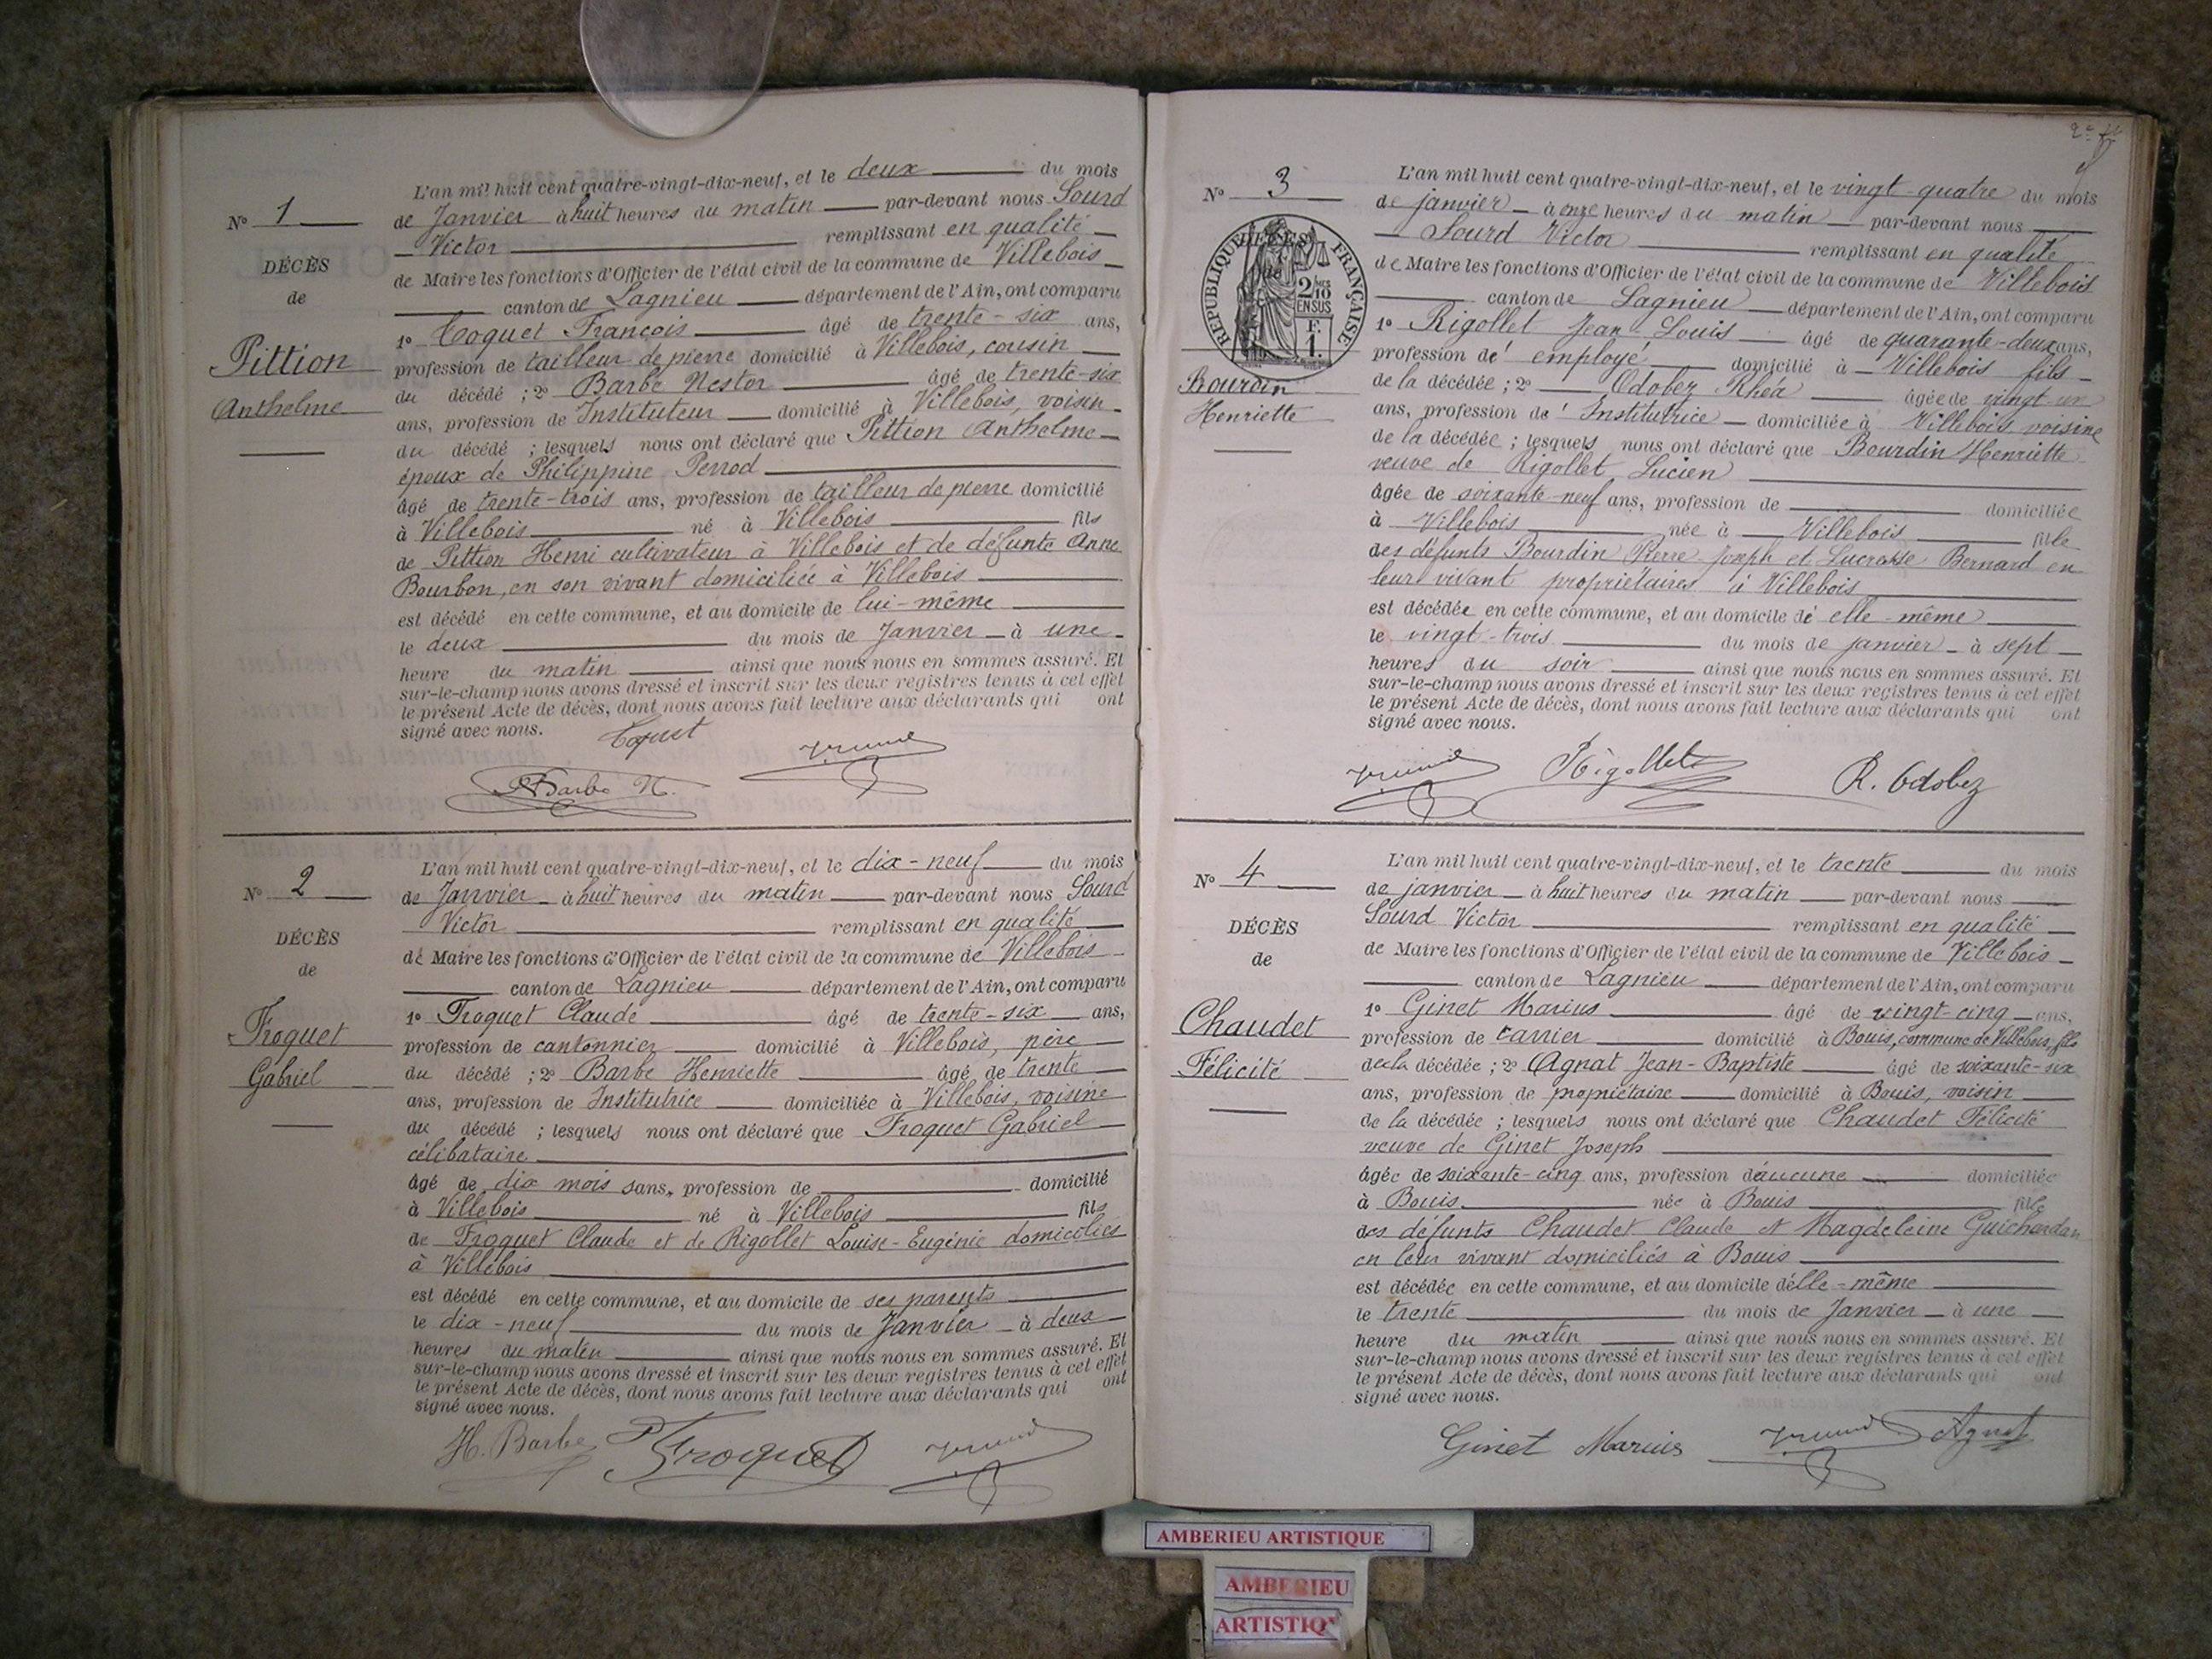 N° 1
DÉCÈS
de
Pittion
Anthelme
L'an mil huit cent quatre-vingt-dix-neuf, et le deux du mois
de Janvier à huit heures du matin par-devant nous Sourd
Victor remplissant en qualité
de Maire les fonctions d'Officier de l'état civil de la commune de Villebois
canton de Lagnieu département de l'Ain, ont comparu
1° Coquet François âgé de trente-six ans,
profession de tailleur de pierre domicilié à Villebois, cousin
du décédé ; 2° Barbe Nestor âgé de trente-six
ans, profession de Instituteur domicilié à Villebois, voisin
du décédé ; lesquels nous ont déclaré que Pittion Anthelme
époux de Philippine Perrod
âgé de trente-trois ans, profession de tailleur de pierre domicilié
à Villebois né à Villebois fils
de Pittion Henri cultivateur à Villebois et de défunte Anne
Bourbon, en son vivant domiciliée à Villebois
est décédé en cette commune, et au domicile de lui-même
le deux du mois de Janvier à une
heure du matin ainsi que nous nous en sommes assuré. Et
sur-le-champ nous avons dressé et inscrit sur les deux registres tenus à cet effet
le présent Acte de décès, dont nous avons fait lecture aux déclarants qui ont
signé avec nous.
Coquet
Barbe N.
N° 2
DÉCÈS
de
Froquet
Gabriel
L'an mil huit cent quatre-vingt-dix-neuf, et le dix-neuf du mois
de Janvier à huit heures du matin par-devant nous Sourd
Victor remplissant en qualité
de Maire les fonctions d'Officier de l'état civil de la commune de Villebois
canton de Lagnieu département de l'Ain, ont comparu
1° Froquet Claude âgé de trente-six ans,
profession de cantonnier domicilié à Villebois, père
du décédé ; 2° Barbe Henriette âgé de trente
ans, profession de Institutrice domiciliée à Villebois, voisine
du décédé ; lesquels nous ont déclaré que Froquet Gabriel
célibataire
âgé de dix mois sans, profession de domicilié
à Villebois né à Villebois fils
de Froquet Claude et de Rigollet Louise-Eugénie domiciliés
à Villebois
est décédé en cette commune, et au domicile de ses parents
le dix-neuf du mois de Janvier à deux
heures du matin ainsi que nous nous en sommes assuré. Et
sur-le-champ nous avons dressé et inscrit sur les deux registres tenus à cet effet
le présent Acte de décès, dont nous avons fait lecture aux déclarants qui ont
signé avec nous.
H. Barbe Froquet
N° 3
RÉPUBLIQUE FRANÇAISE
DÉCÈS
de
2/10
EN SUS
F.
1.
Bourdin
Henriette
L'an mil huit cent quatre-vingt-dix-neuf, et le vingt-quatre du mois
de janvier à onze heures du matin par-devant nous
Sourd Victor remplissant en qualité
de Maire les fonctions d'Officier de l'état civil de la commune de Villebois
canton de Lagnieu département de l'Ain, ont comparu
1° Rigollet Jean-Louis âgé de quarante-deux ans,
profession d'employé domicilié à Villebois fils
de la décédée ; 2° Odobez Rhéa âgée de vingt un
ans, profession d'Institutrice domiciliée à Villebois voisine
de la décédée ; lesquels nous ont déclaré que Bourdin Henriette
veuve de Rigollet Lucien
âgée de soixante-neuf ans, profession de domiciliée
à Villebois née à Villebois fille
des défunts Bourdin Pierre Joseph et Lucresse Bernard en
leur vivant propriétaires à Villebois
est décédée en cette commune, et au domicile d'elle-même
le vingt-trois du mois de janvier à sept
heures du soir ainsi que nous nous en sommes assuré. Et
sur-le-champ nous avons dressé et inscrit sur les deux registres tenus à cet effet
le présent Acte de décès, dont nous avons fait lecture aux déclarants qui ont
signé avec nous.
Rigollet R. Odobez
N° 4
DÉCÈS
de
Chaudet
Félicité
L'an mil huit cent quatre-vingt-dix-neuf, et le trente du mois
de janvier à huit heures du matin par-devant nous
Sourd Victor remplissant en qualité
de Maire les fonctions d'Officier de l'état civil de la commune de Villebois
canton de Lagnieu département de l'Ain, ont comparu
1° Ginet Marius âgé de vingt-cinq ans,
profession de carrier domicilié à Bouis, commune de Villebois, fils
de la décédée ; 2° Agnat Jean-Baptiste âgé de soixante-six
ans, profession de propriétaire domicilié à Bouis, voisin
de la décédée ; lesquels nous ont déclaré que Chaudet Félicité
veuve de Ginet Joseph
âgée de soixante-cinq ans, profession d'aucune domiciliée
à Bouis née à Bouis fille
des défunts Chaudet Claude et Magdeleine Guichardan
en leur vivant domiciliés à Bouis
est décédée en cette commune, et au domicile d'elle-même
le trente du mois de Janvier à une
heure du matin ainsi que nous nous en sommes assuré. Et
sur-le-champ nous avons dressé et inscrit sur les deux registres tenus à cet effet
le présent Acte de décès, dont nous avons fait lecture aux déclarants qui ont
signé avec nous.
Ginet Marius Agnat
AMBERIEU ARTISTIQUE
AMBERIEU
ARTISTIQ